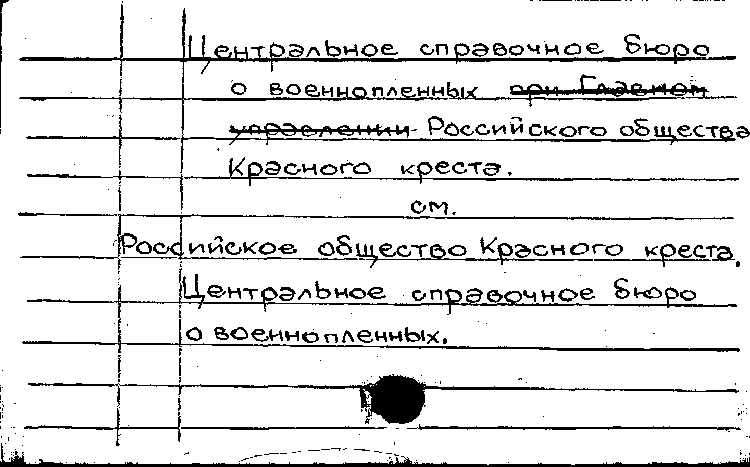 Центральное справочное бюро
о военнопленных при Главном
управлении Российского общества
Красного креста.
см.
Российское общество Красного креста.
Центральное справочное бюро
о военнопленных.